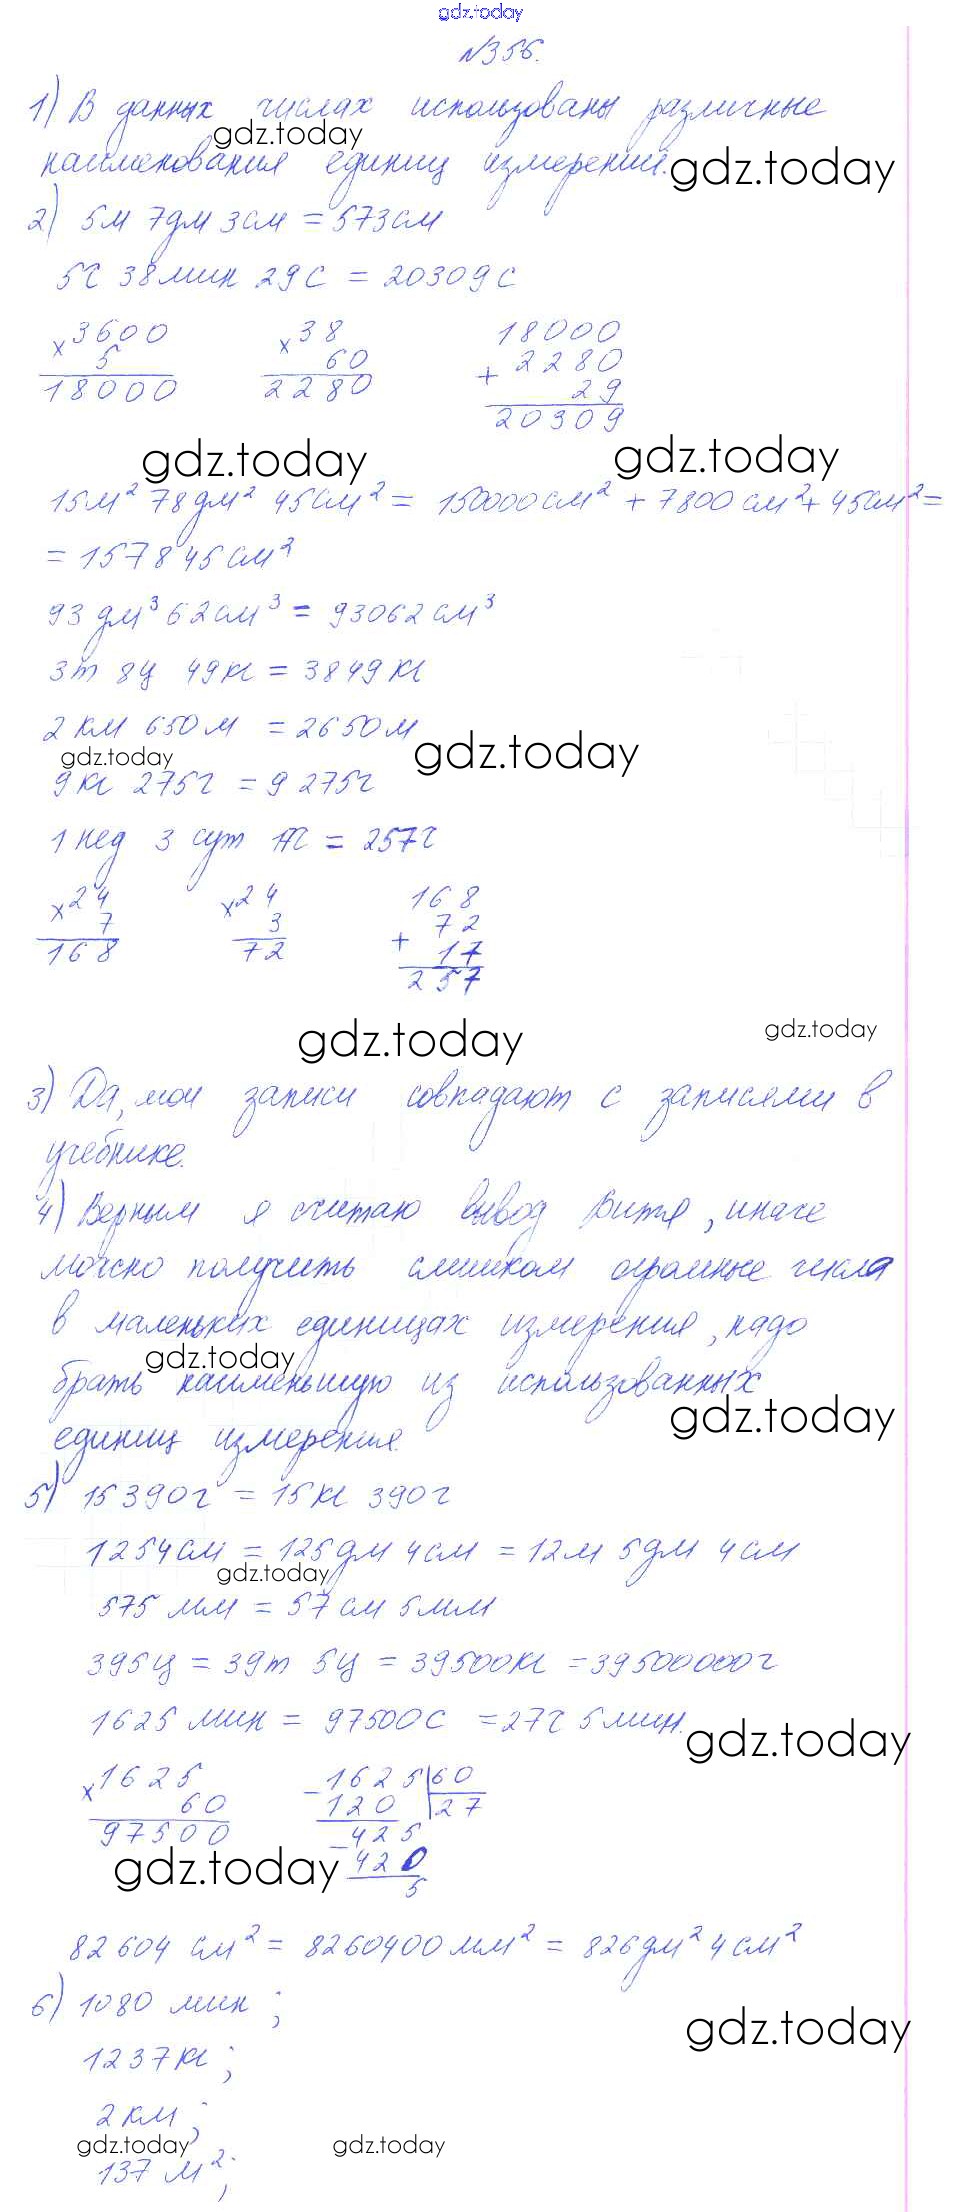 gdz.today
№356.
1) В данных числах использованы различные
gdz.today
наименования единиц измерений.
gdz.today
2) 5м 7дм 3см = 573см
5ч 38мин 29с = 20309с
×3600 ×38 18000
5 60 + 2280
18000 2280 29
20309
gdz.today gdz.today
15м² 78дм² 45см² = 150000см² + 7800см² + 45см² =
= 157845см²
93 дм³ 62см³ = 93062см³
3т 8ц 49кг = 3849кг
2 км 650м = 2650м
gdz.today gdz.today
9кг 275г = 9275г
1 нед 3 сут 17ч = 257ч
×24 ×24 168
7 3 72
168 72 + 17
257
gdz.today gdz.today
3) Да, мои записи совпадают с записями в
учебнике.
4) Верным я считаю вывод Вити, иначе
можно получить слишком огромные числа
в маленьких единицах измерения, надо
gdz.today
брать наименьшую из использованных
gdz.today
единиц измерения.
5) 15390г = 15кг 390г
1254см = 125дм 4см = 12м 5дм 4см
gdz.today
575 мм = 57см 5мм
395ц = 39т 5ц = 39500кг = 39500000г
1625 мин = 97500с = 27ч 5мин.
gdz.today
×1625 −1625|60
60 120 |27
97500 −425
gdz.today 420
5
82604 см² = 8260400мм² = 826дм² 4см²
6) 1080 мин;
gdz.today
1237кг;
2км;
gdz.today gdz.today
137 м²;